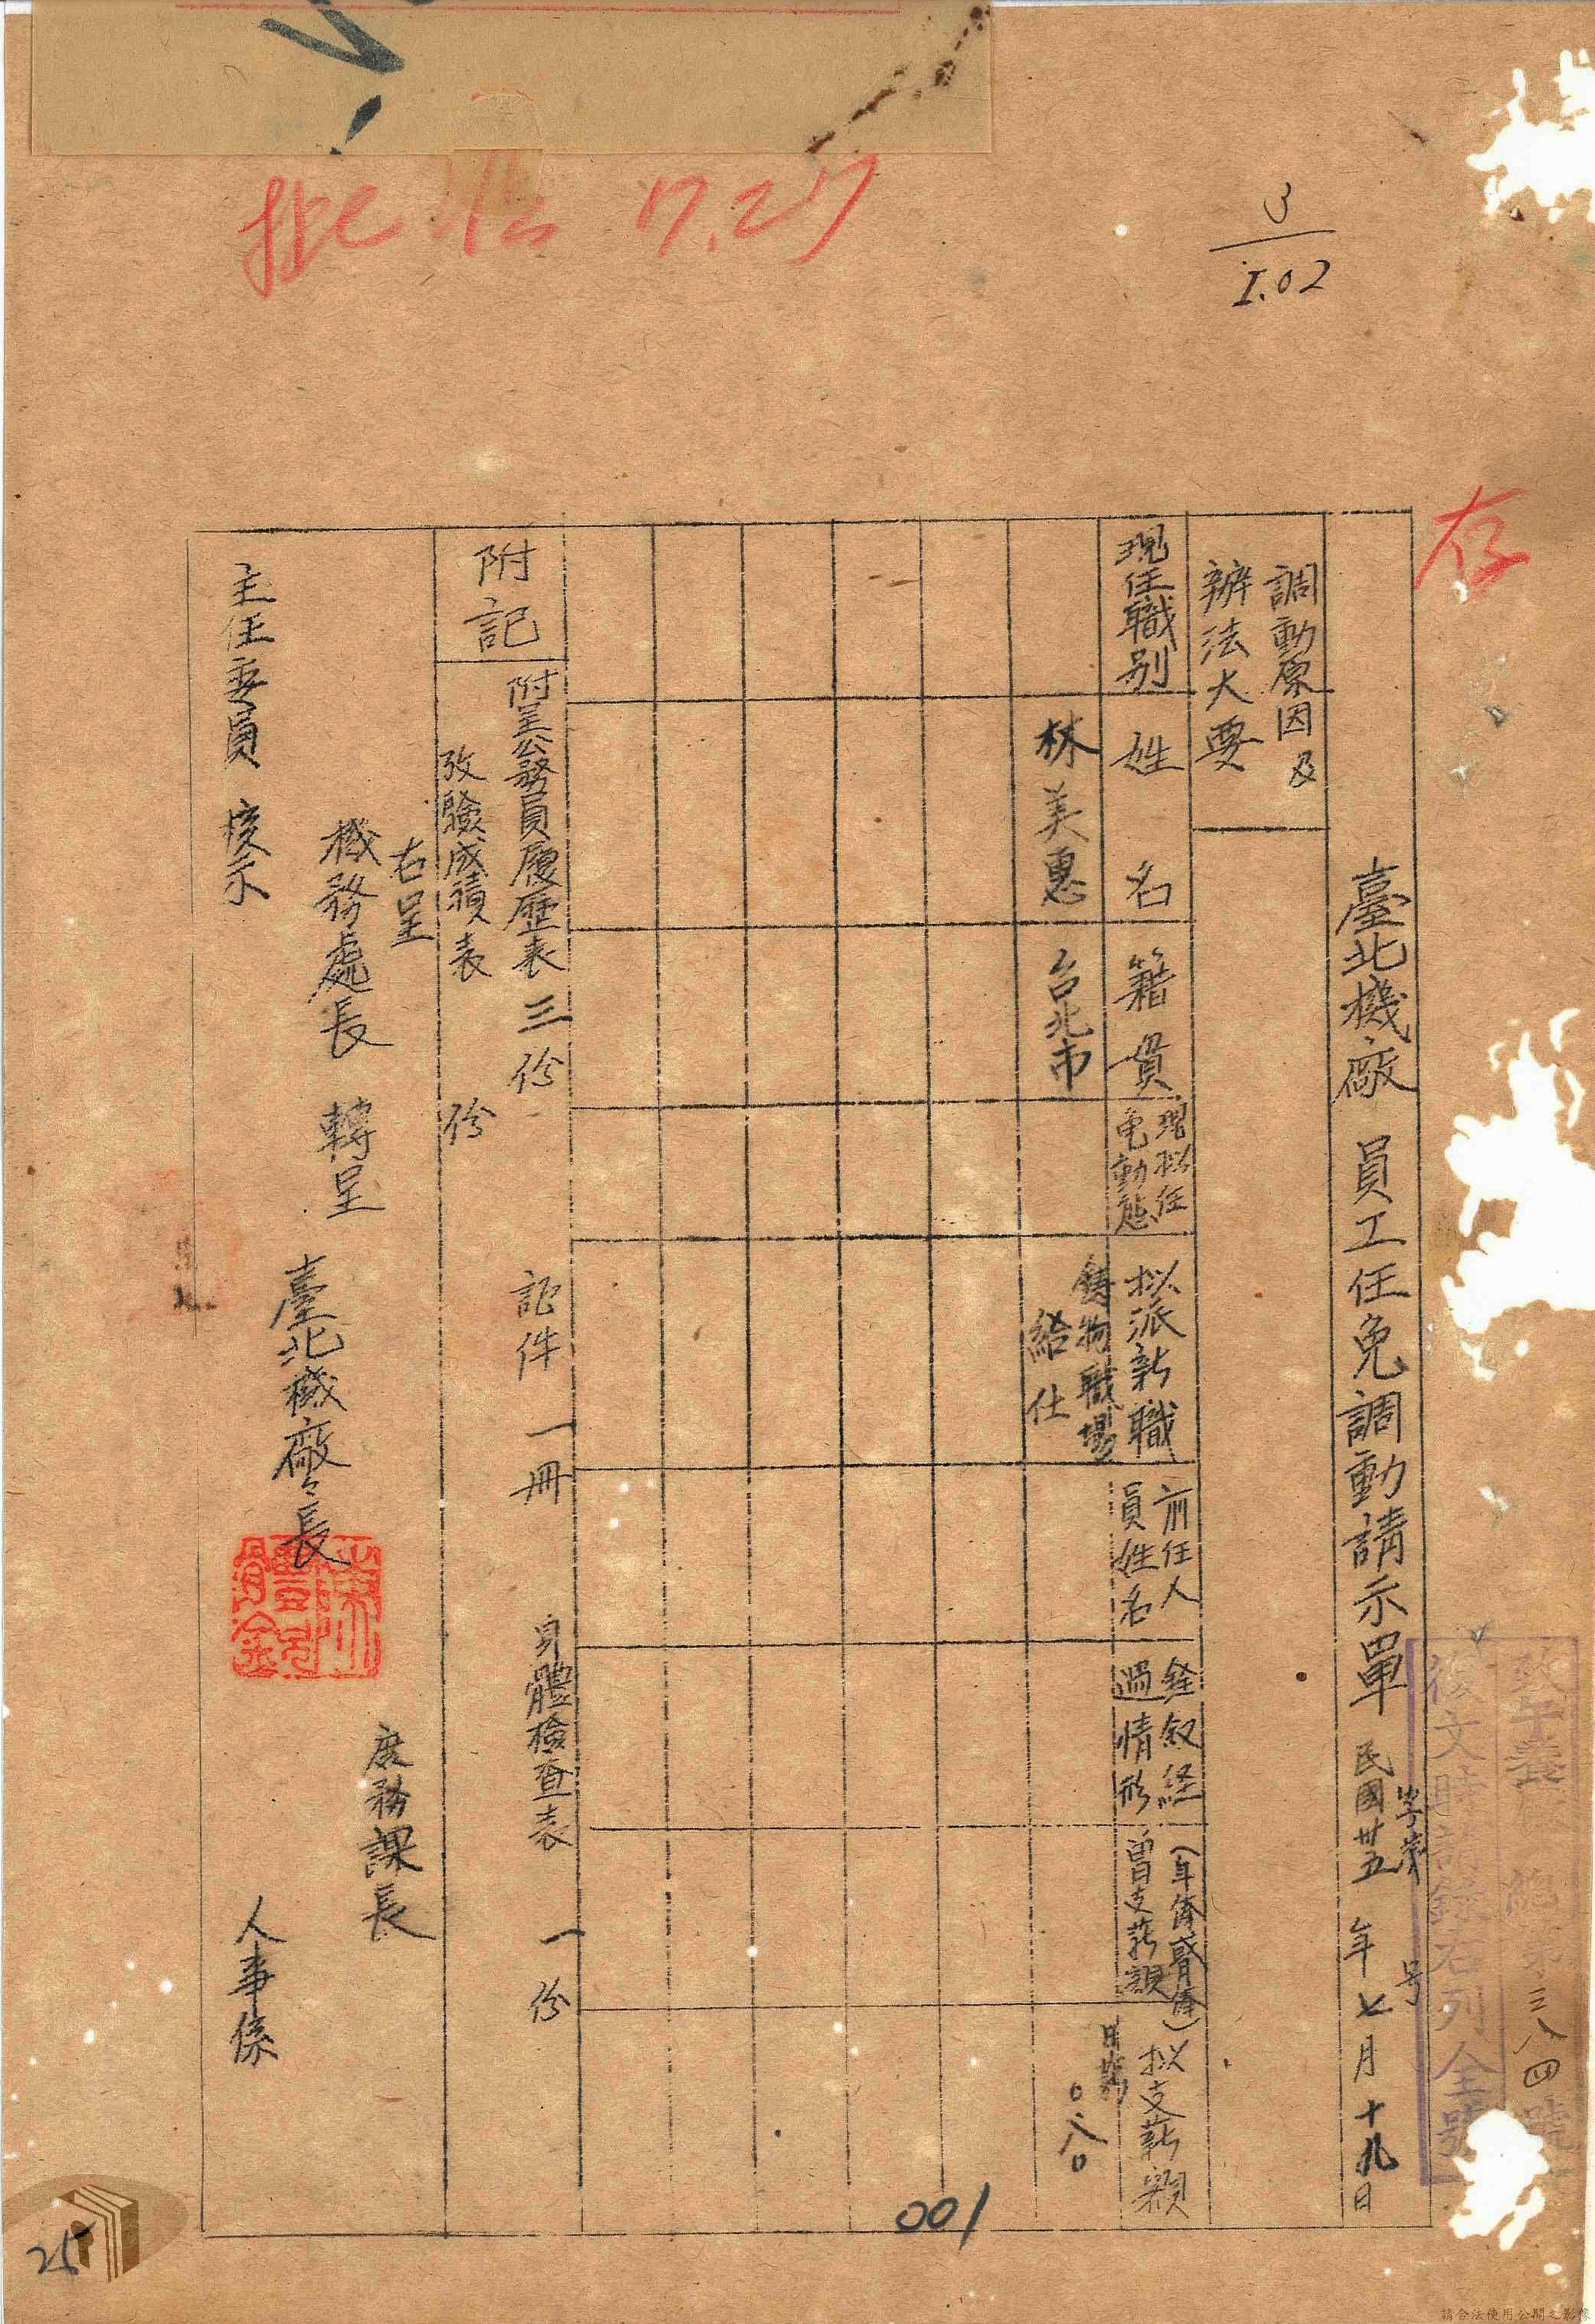 批 7.27
3
I.02
存
復文時請錄右列全號
三八四號
字第 号
臺北機廠 員工任免調動請示單 民國卅五年七月十九日
調動原因及
辦法大要
現任職別
姓名
籍貫
現拟任
免動態
拟派新職
前任人
員姓名
銓叙経
過情形
(年俸或月俸)
曽支薪額
拟支薪額
林美惠
台北市
鋳物職場
給仕
日薪
〇.八〇
附記
附呈公務員履歷表三份 証件一冊 身體檢查表一份
攷驗成績表 份
右呈
機務處長 轉呈
主任委員 核示
臺北機廠々長
庶務課長
人事係
001
25
請合法使用公開之影像